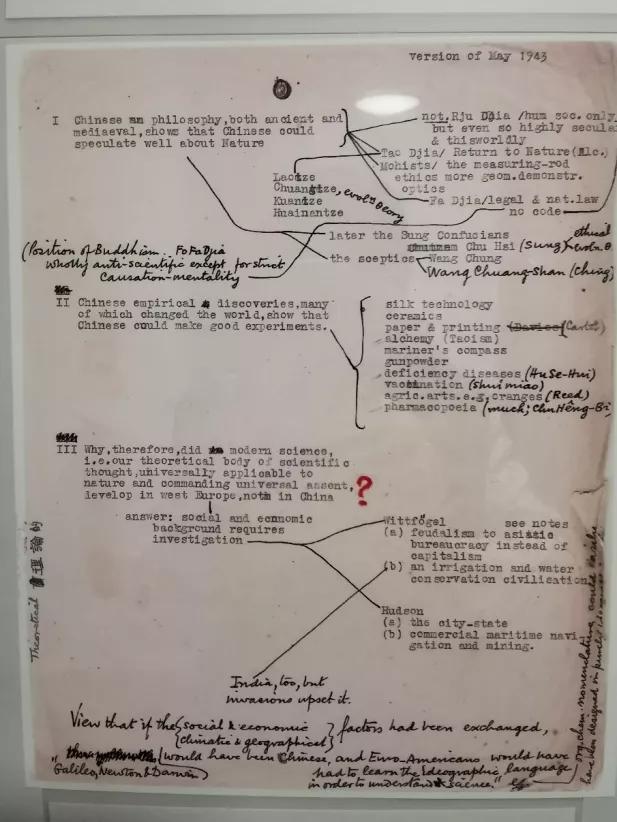 version of May 1943
I Chinese philosophy, both ancient and
mediaeval, shows that Chinese could
speculate well about Nature
not, Rju Djia /hum soc. only
but even so highly secula
& thisworldly
Tao Djia/ Return to Nature(Alc.)
Mohists/ the measuring-rod
ethics more geom.demonstr.
optics
Fa Djia/legal & nat.law
no code
Laotze
Chuangtze, evoln theory
Kuantze
Huainantze
later the Sung Confucians
Chu Hsi (Sung) ethical evoln. θ
the sceptics Wang Chung
Wang Chuang-Shan (Ching)
(Position of Buddhism. Fo Fa Djia
wholly anti-scientific except for strict
causation-mentality)
II Chinese empirical discoveries, many
of which changed the world, show that
Chinese could make good experiments.
silk technology
ceramics
paper & printing (Carter)
alchemy (Taoism)
mariner's compass
gunpowder
deficiency diseases (Hu Se-Hui)
vaccination (Shui miao)
agric.arts.e.g.oranges (Reed)
pharmacopoeia (much; Chu Hêng-Bi)
III Why, therefore, did modern science,
i.e. our theoretical body of scientific
thought, universally applicable to
nature and commanding universal assent,
develop in west Europe, not in China
?
answer: social and economic
background requires
investigation
Wittfogel see notes
(a) feudalism to asiatic
bureaucracy instead of
capitalism
(b) an irrigation and water
conservation civilisation
Hudson
(a) the city-state
(b) commercial maritime navi
gation and mining.
Theoretical 理論的
India, too, but
invasions upset it.
View that if the {social & economic / climatic & geographical} factors had been exchanged,
" Galileo, Newton & Darwin) would have been Chinese, and Euro-Americans would have
had to learn the ideographic language
in order to understand science."
org. chem. nomenclature could easily
have been designed in purely